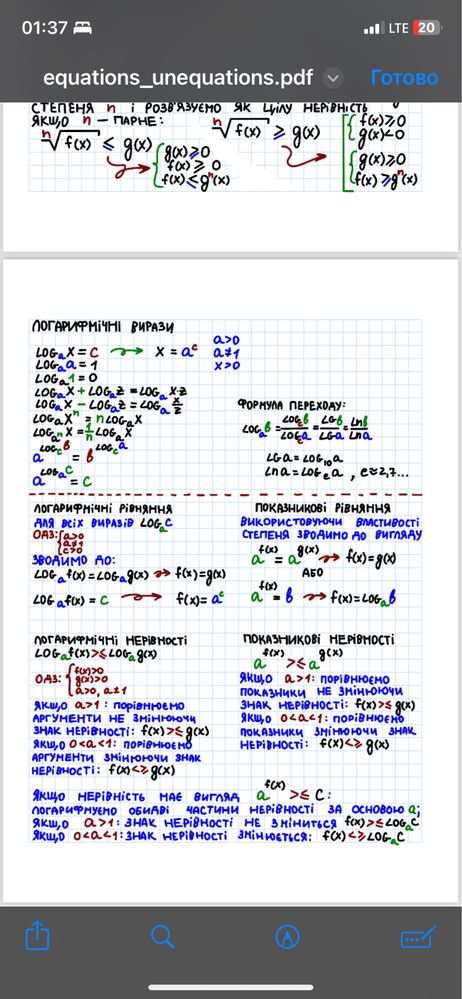 01:37
LTE 20
equations_unequations.pdf
Готово
СТЕПЕНЯ n І РОЗВ'ЯЗУЄМО ЯК ЦІЛУ НЕРІВНІСТЬ
ЯКЩО n – ПАРНЕ:
ⁿ√f(x) ≤ g(x)
g(x)⩾0
f(x)⩾0
f(x)≤gⁿ(x)
ⁿ√f(x) ≥ g(x)
f(x)⩾0
g(x)<0
g(x)⩾0
f(x)⩾gⁿ(x)
ЛОГАРИФМІЧНІ ВИРАЗИ
LOGₐX = C → X = aᶜ
a>0
a≠1
x>0
LOGₐa = 1
LOGₐ1 = 0
LOGₐX + LOGₐZ = LOGₐX·Z
LOGₐX – LOGₐZ = LOGₐ X/Z
LOGₐXⁿ = n LOGₐX
LOGₐⁿX = 1/n LOGₐX
a^(LOG_c b) = b^(LOG_c a)
a^(LOGₐC) = C
ФОРМУЛА ПЕРЕХОДУ:
LOGₐb = LOG_c b/LOG_c a = LG b/LG a = Ln b/Ln a
LG a = LOG₁₀a
Ln a = LOGₑa , e≈2,7...
ЛОГАРИФМІЧНІ РІВНЯННЯ
ДЛЯ ВСІХ ВИРАЗІВ LOGₐC
ОДЗ:
a>0
a≠1
c>0
ЗВОДИМО ДО:
LOGₐf(x) = LOGₐg(x) → f(x)=g(x)
LOGₐf(x) = C → f(x)= aᶜ
ПОКАЗНИКОВІ РІВНЯННЯ
ВИКОРИСТОВУЮЧИ ВЛАСТИВОСТІ
СТЕПЕНЯ ЗВОДИМО ДО ВИГЛЯДУ
a^f(x) = a^g(x) → f(x)=g(x)
АБО
a^f(x) = b → f(x)=LOGₐb
ЛОГАРИФМІЧНІ НЕРІВНОСТІ
LOGₐf(x) >≤ LOGₐg(x)
ОДЗ:
f(x)>0
g(x)>0
a>0, a≠1
ЯКЩО a>1: ПОРІВНЮЄМО
АРГУМЕНТИ НЕ ЗМІНЮЮЧИ
ЗНАК НЕРІВНОСТІ: f(x)>≤g(x)
ЯКЩО 0<a<1: ПОРІВНЮЄМО
АРГУМЕНТИ ЗМІНЮЮЧИ ЗНАК
НЕРІВНОСТІ: f(x)<⩾g(x)
ПОКАЗНИКОВІ НЕРІВНОСТІ
a^f(x) >≤ a^g(x)
ЯКЩО a>1: ПОРІВНЮЄМО
ПОКАЗНИКИ НЕ ЗМІНЮЮЧИ
ЗНАК НЕРІВНОСТІ: f(x)>≤g(x)
ЯКЩО 0<a<1: ПОРІВНЮЄМО
ПОКАЗНИКИ ЗМІНЮЮЧИ ЗНАК
НЕРІВНОСТІ: f(x)<⩾ g(x)
ЯКЩО НЕРІВНІСТЬ МАЄ ВИГЛЯД a^f(x) >≤ C:
ЛОГАРИФМУЄМО ОБИДВІ ЧАСТИНИ НЕРІВНОСТІ ЗА ОСНОВОЮ a;
ЯКЩО a>1: ЗНАК НЕРІВНОСТІ НЕ ЗМІНИТЬСЯ f(x)>≤LOGₐC
ЯКЩО 0<a<1: ЗНАК НЕРІВНОСТІ ЗМІНЮЄТЬСЯ: f(x)<⩾LOGₐC